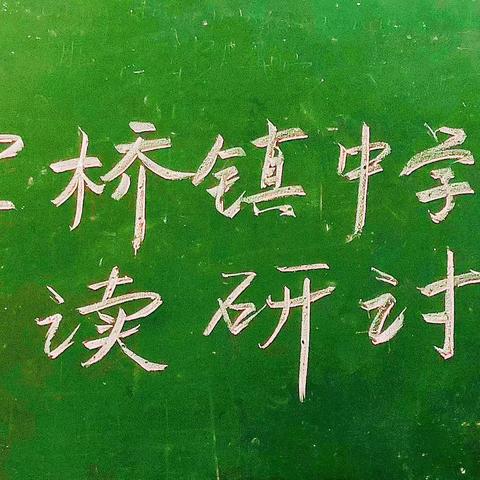 桥镇中学
读研讨